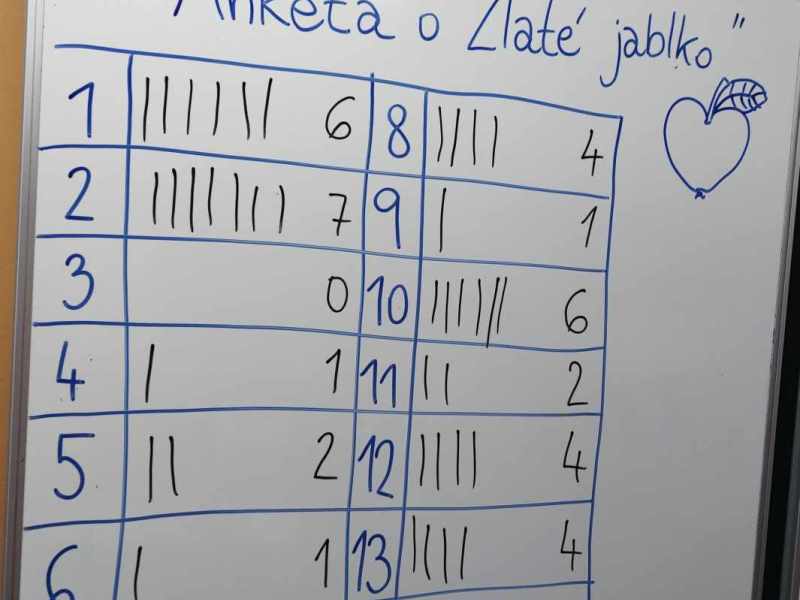 Anketa o Zlaté jablko"
1 |||||| 6 8 |||| 4
2 ||||||| 7 9 | 1
3 0 10 |||||| 6
4 | 1 11 || 2
5 || 2 12 |||| 4
6 | 1 13 |||| 4